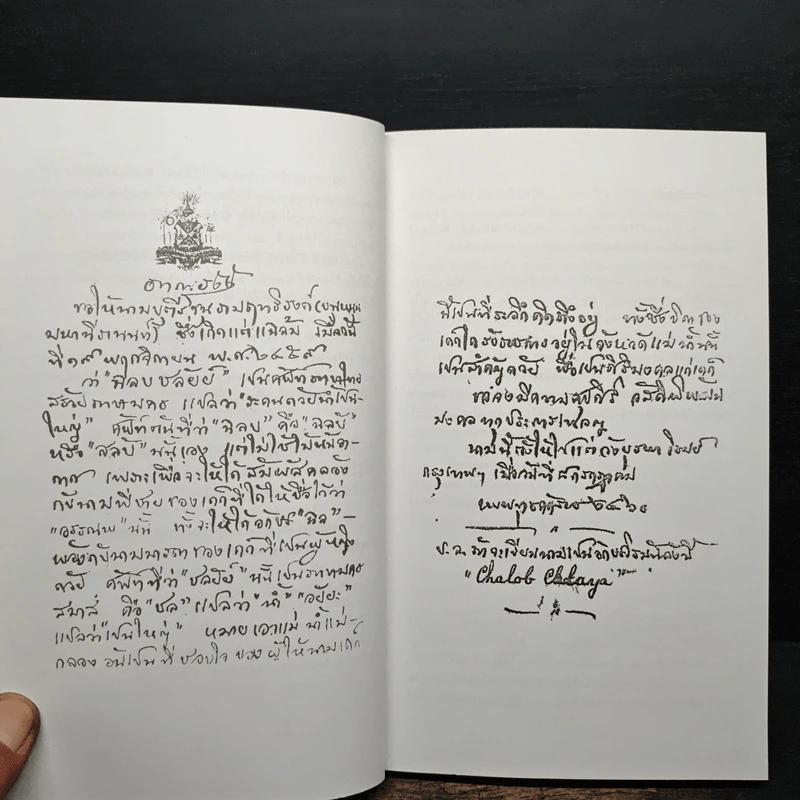 ขอให้นามบุตรีขุนรามฤทธิรงค์
ซึ่งเกิดแต่แม่ลม้ เมื่อวันที่
ที่ ๑๙ พฤศจิกายน พ.ศ. ๒๔๕๙
ว่า "ฉลบชลัยย์" เป็นศัพท์
แปลว่า
ใหญ่" ศัพท์ต้นที่ว่า "ฉลบ" คือ "ฉลับ"
หรือ "สลับ" นั้นเอง แต่ไม่ใช้ไม้หันอา-
กาศ เพราะเพื่อจะให้ได้สัมผัสคล้อง
กับนามพี่ชายของเด็กที่ได้ให้ชื่อไว้ว่า
"อรรณพ" นั้น ทั้งจะให้ได้อักษร "ฉล"-
พ้องกับนามมารดาของเด็กที่เป็นผู้หญิง
ด้วย ศัพท์ที่ว่า "ชลัยย์" นั้นเป็น
สมาส คือ "ชล" แปลว่า "น้ำ" "อัยยะ"
แปลว่า "เป็นใหญ่" หมายเอาแม่น้ำแม่-
กลอง อันเป็นที่ชอบใจของผู้ให้นามเด็ก
นี้เป็นที่ระลึกคิดถึงอยู่ ทั้งซึ่งบิดาของ
เด็กได้รับราชการอยู่ในจังหวัดแม่น้ำนี้
เป็นสำคัญด้วย เพื่อเป็นศิริมงคลแก่เด็ก
ขอจงมีความศุขศิริ สวัสดิพิพัฒน์
มงคลทุกประการเทอญ
นามนี้ตั้งให้ไปแต่วังบูรพาภิรมย์
กรุงเทพฯ เมื่อวันที่
พระพุทธศักราช ๒๔๖๐
ป.ล. ถ้าจะเขียนนามเป็นอักษรโรมันดังนี้
"Chalob Chlaya"